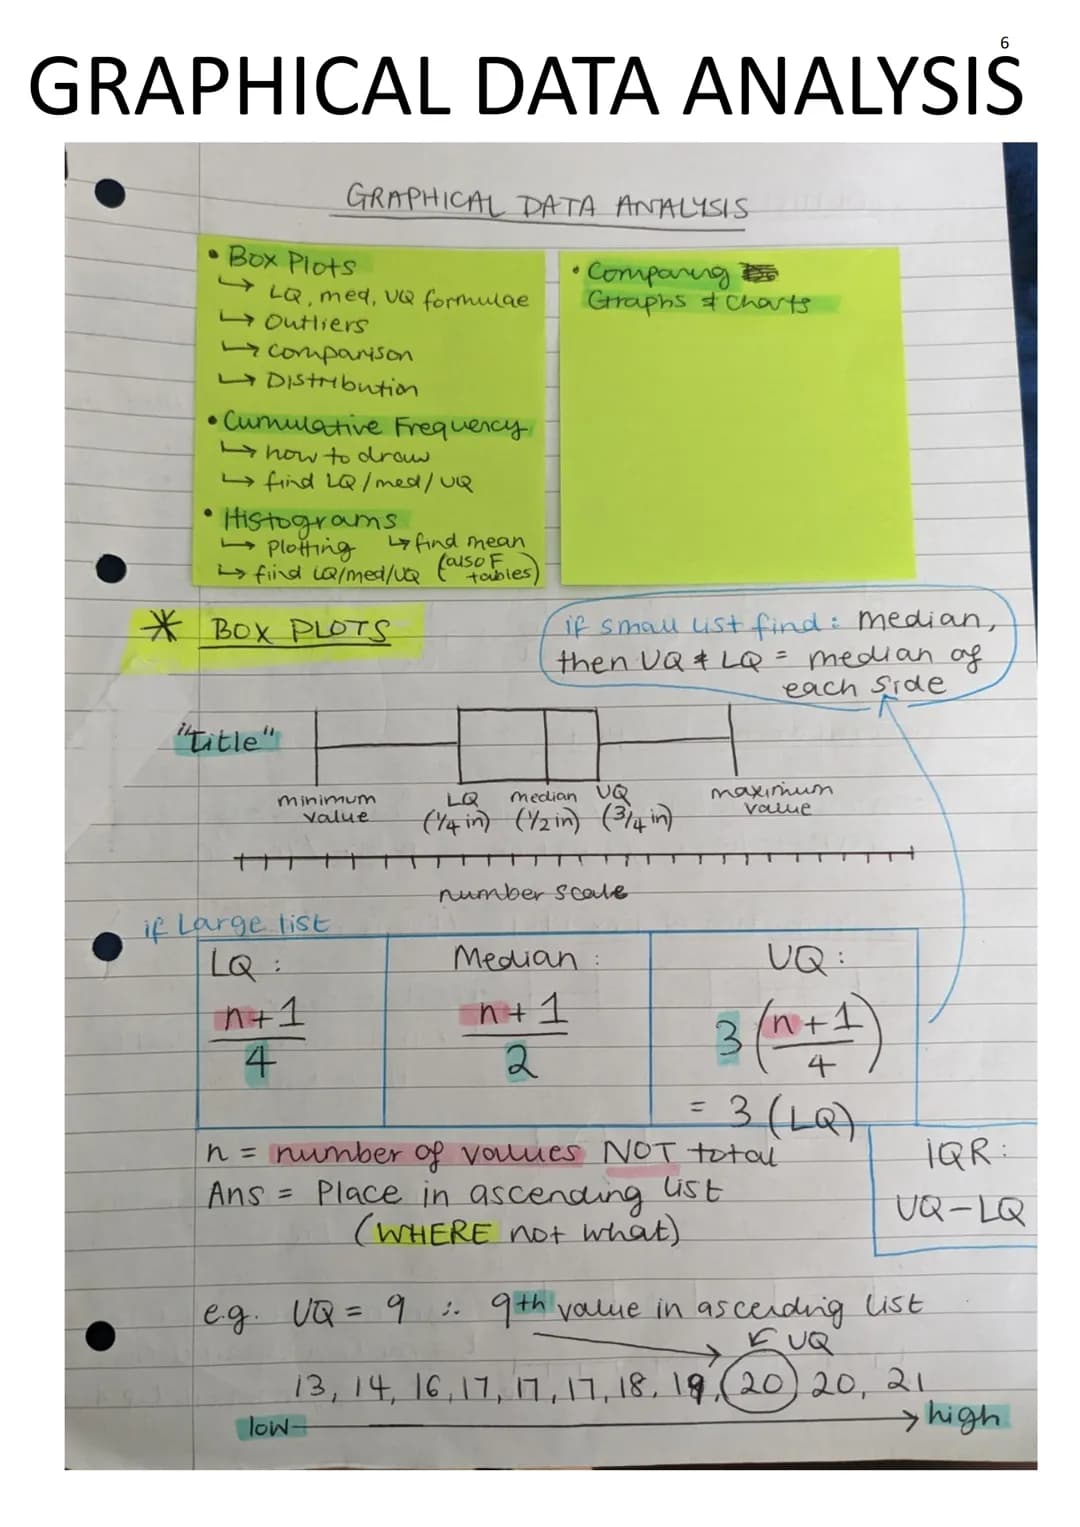 6
GRAPHICAL DATA ANALYSIS
GRAPHICAL DATA ANALYSIS
• Box Plots
↳ LQ, med, UQ formulae
↳ Outliers
↳ comparison
↳ Distribution
• Cumulative Frequency
↳ how to draw
↳ find LQ/med/UQ
• Histograms
↳ Plotting ↳ find mean
↳ find LQ/med/UQ (also F tables)
• Comparing
Graphs & Charts
* BOX PLOTS
if small list find: median,
then UQ & LQ = median of
each side
"Title"
minimum value
LQ (1/4 in)
median (1/2 in)
UQ (3/4 in)
maximum value
number scale
if Large list
LQ :
n+1
4
Median :
n+1
2
UQ :
3(n+1/4)
= 3(LQ)
n = number of values NOT total
Ans = Place in ascending list
(WHERE not what)
IQR:
UQ-LQ
e.g. UQ = 9 ∴ 9th value in ascending list
UQ
13, 14, 16, 17, 17, 17, 18, 19, 20 20, 21
low high